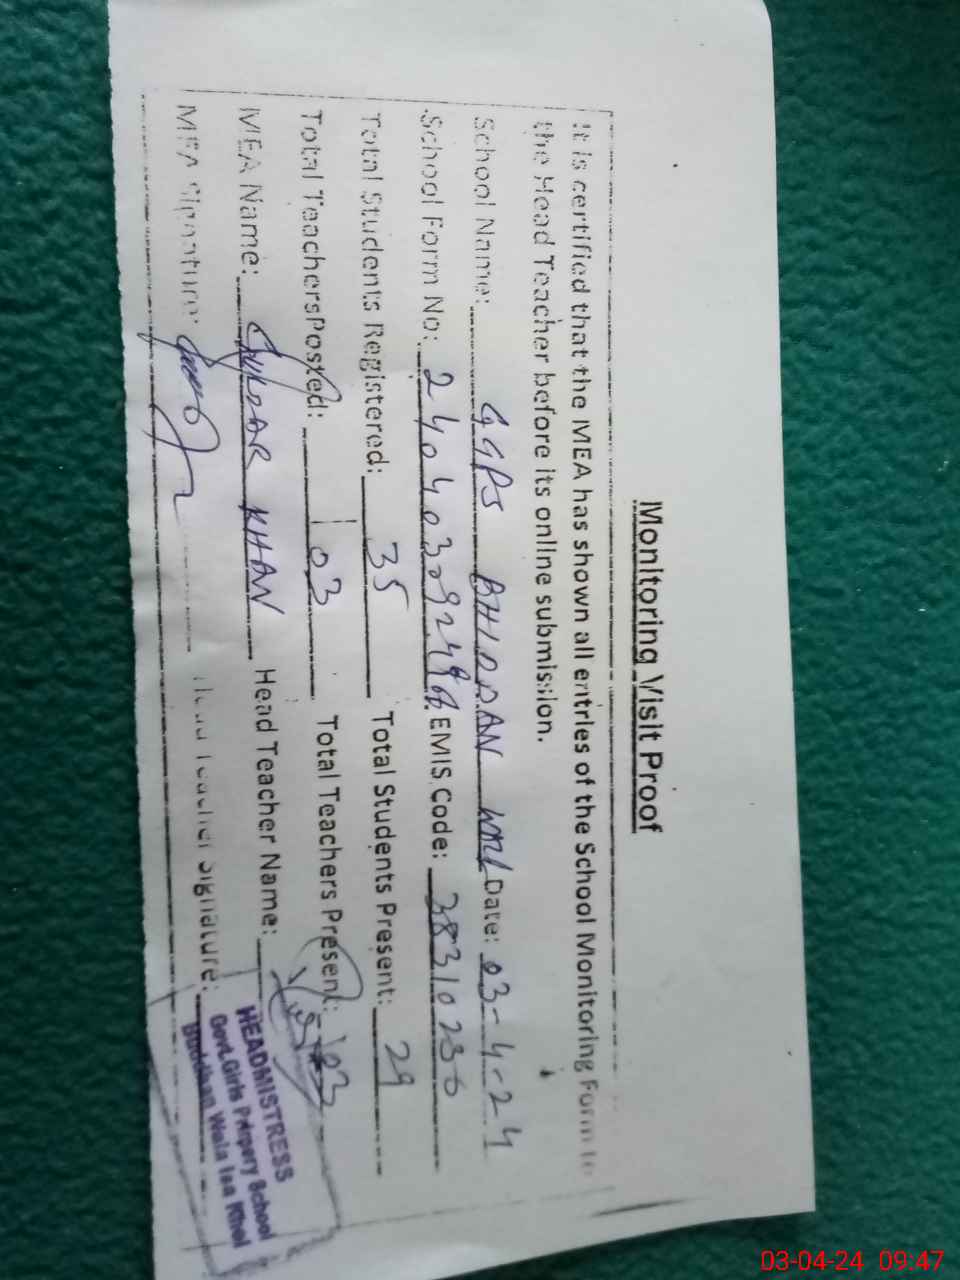 Monitoring Visit Proof
It is certified that the MEA has shown all entries of the School Monitoring Form to
the Head Teacher before its online submission.
School Name: GGPS BHIDDAN WALI Date: 03-4-24
School Form No: EMIS Code: 38310236
Total Students Registered: 35 Total Students Present: 29
Total Teachers Posted: 03 Total Teachers Present: 03
MEA Name: KHAN Head Teacher Name:
MEA Signature: Head Teacher Signature:
HEADMISTRESS
Govt.Girls Primary School
Wala Isa Khel
03-04-24 09:47